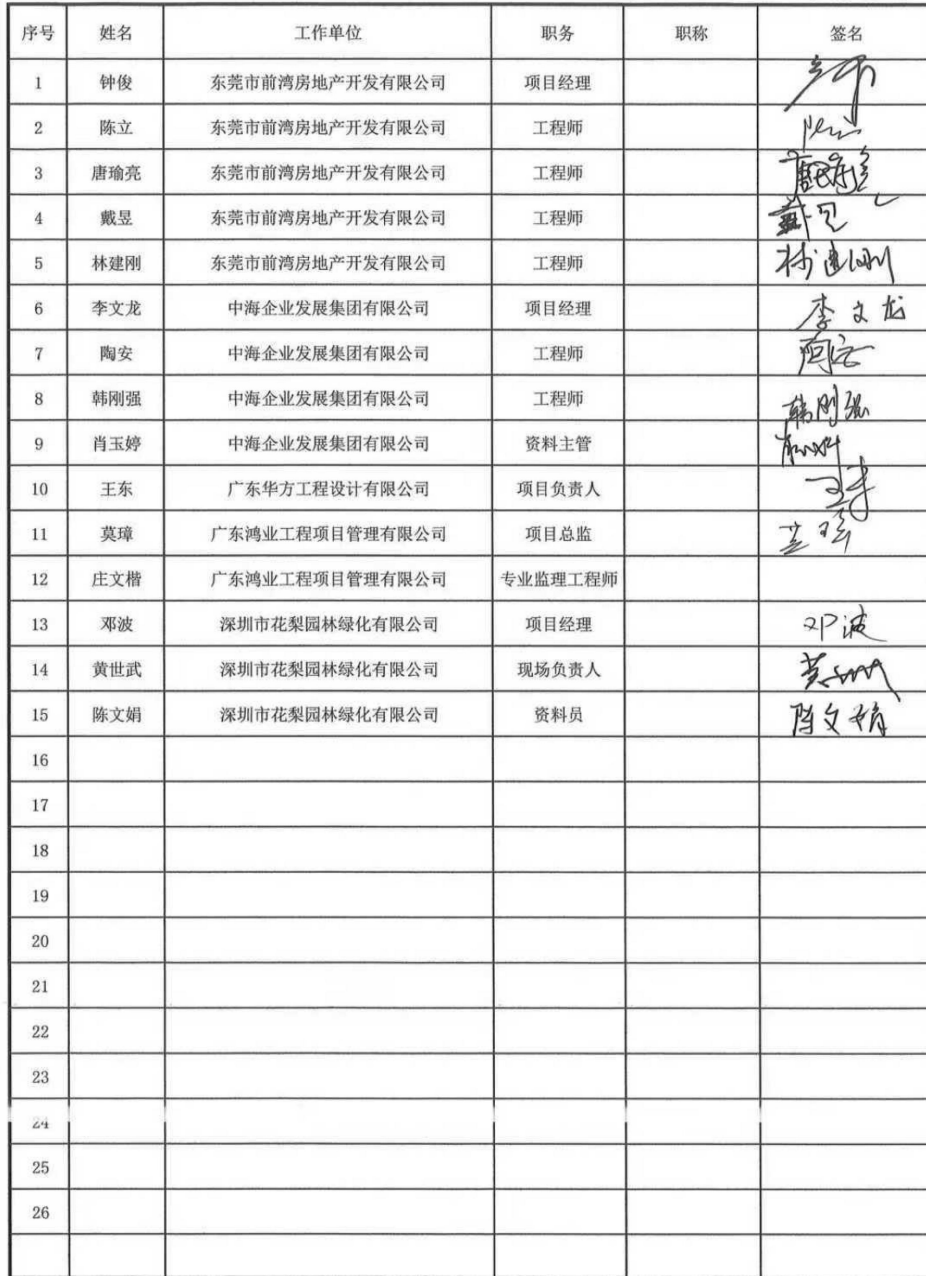 序号 姓名 工作单位 职务 职称 签名
1 钟俊 东莞市前湾房地产开发有限公司 项目经理
2 陈立 东莞市前湾房地产开发有限公司 工程师
3 唐瑜亮 东莞市前湾房地产开发有限公司 工程师
4 戴昱 东莞市前湾房地产开发有限公司 工程师
5 林建刚 东莞市前湾房地产开发有限公司 工程师 林建刚
6 李文龙 中海企业发展集团有限公司 项目经理 李文龙
7 陶安 中海企业发展集团有限公司 工程师 陶安
8 韩刚强 中海企业发展集团有限公司 工程师 韩刚强
9 肖玉婷 中海企业发展集团有限公司 资料主管
10 王东 广东华方工程设计有限公司 项目负责人
11 莫璋 广东鸿业工程项目管理有限公司 项目总监
12 庄文楷 广东鸿业工程项目管理有限公司 专业监理工程师
13 邓波 深圳市花梨园林绿化有限公司 项目经理 邓波
14 黄世武 深圳市花梨园林绿化有限公司 现场负责人
15 陈文娟 深圳市花梨园林绿化有限公司 资料员 陈文娟
16
17
18
19
20
21
22
23
24
25
26